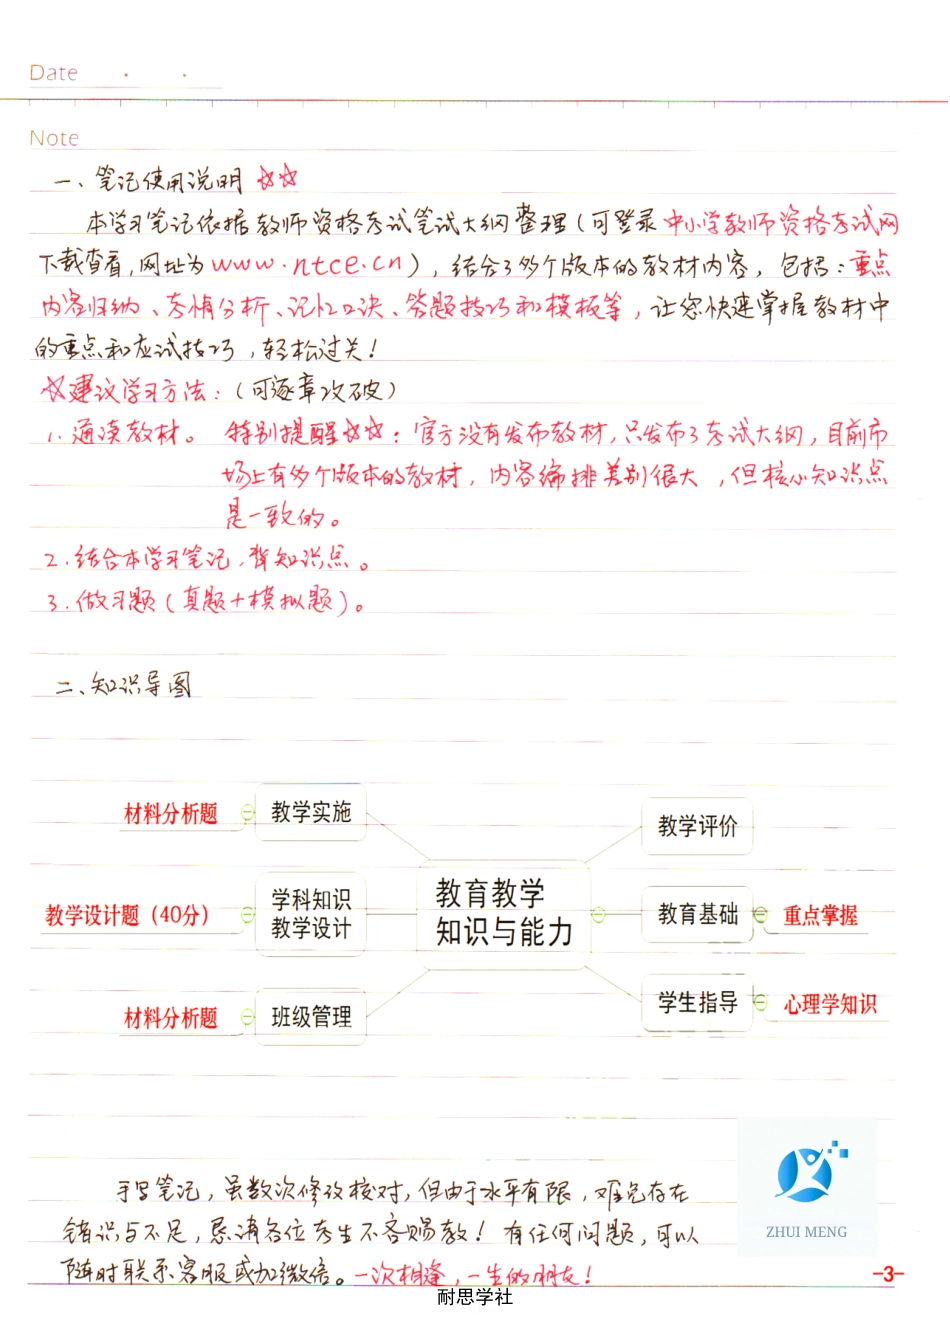 Date
Note
一、笔记使用说明 ☆☆
本学习笔记依据教师资格考试笔试大纲整理(可登录中小学教师资格考试网
下载查看,网址为www.ntce.cn),结合了多个版本的教材内容,包括:重点
内容归纳、考情分析、记忆口诀、答题技巧和模板等,让您快速掌握教材中
的重点和应试技巧,轻松过关!
☆建议学习方法:(可逐章攻破)
1.通读教材。 特别提醒☆☆:官方没有发布教材,只发布了考试大纲,目前市
场上有多个版本的教材,内容编排差别很大,但核心知识点
是一致的。
2.结合本学习笔记,背知识点。
3.做习题(真题+模拟题)。
二、知识导图
材料分析题 教学实施
教学评价
教学设计题(40分)
学科知识
教学设计
教育教学
知识与能力
教育基础 重点掌握
材料分析题 班级管理
学生指导 心理学知识
手写笔记,虽数次修改校对,但由于水平有限,难免存在
错识与不足,恳请各位考生不吝赐教!有任何问题,可以
随时联系客服或加微信。一次相逢,一生的朋友!
ZHUI MENG
-3-
耐思学社